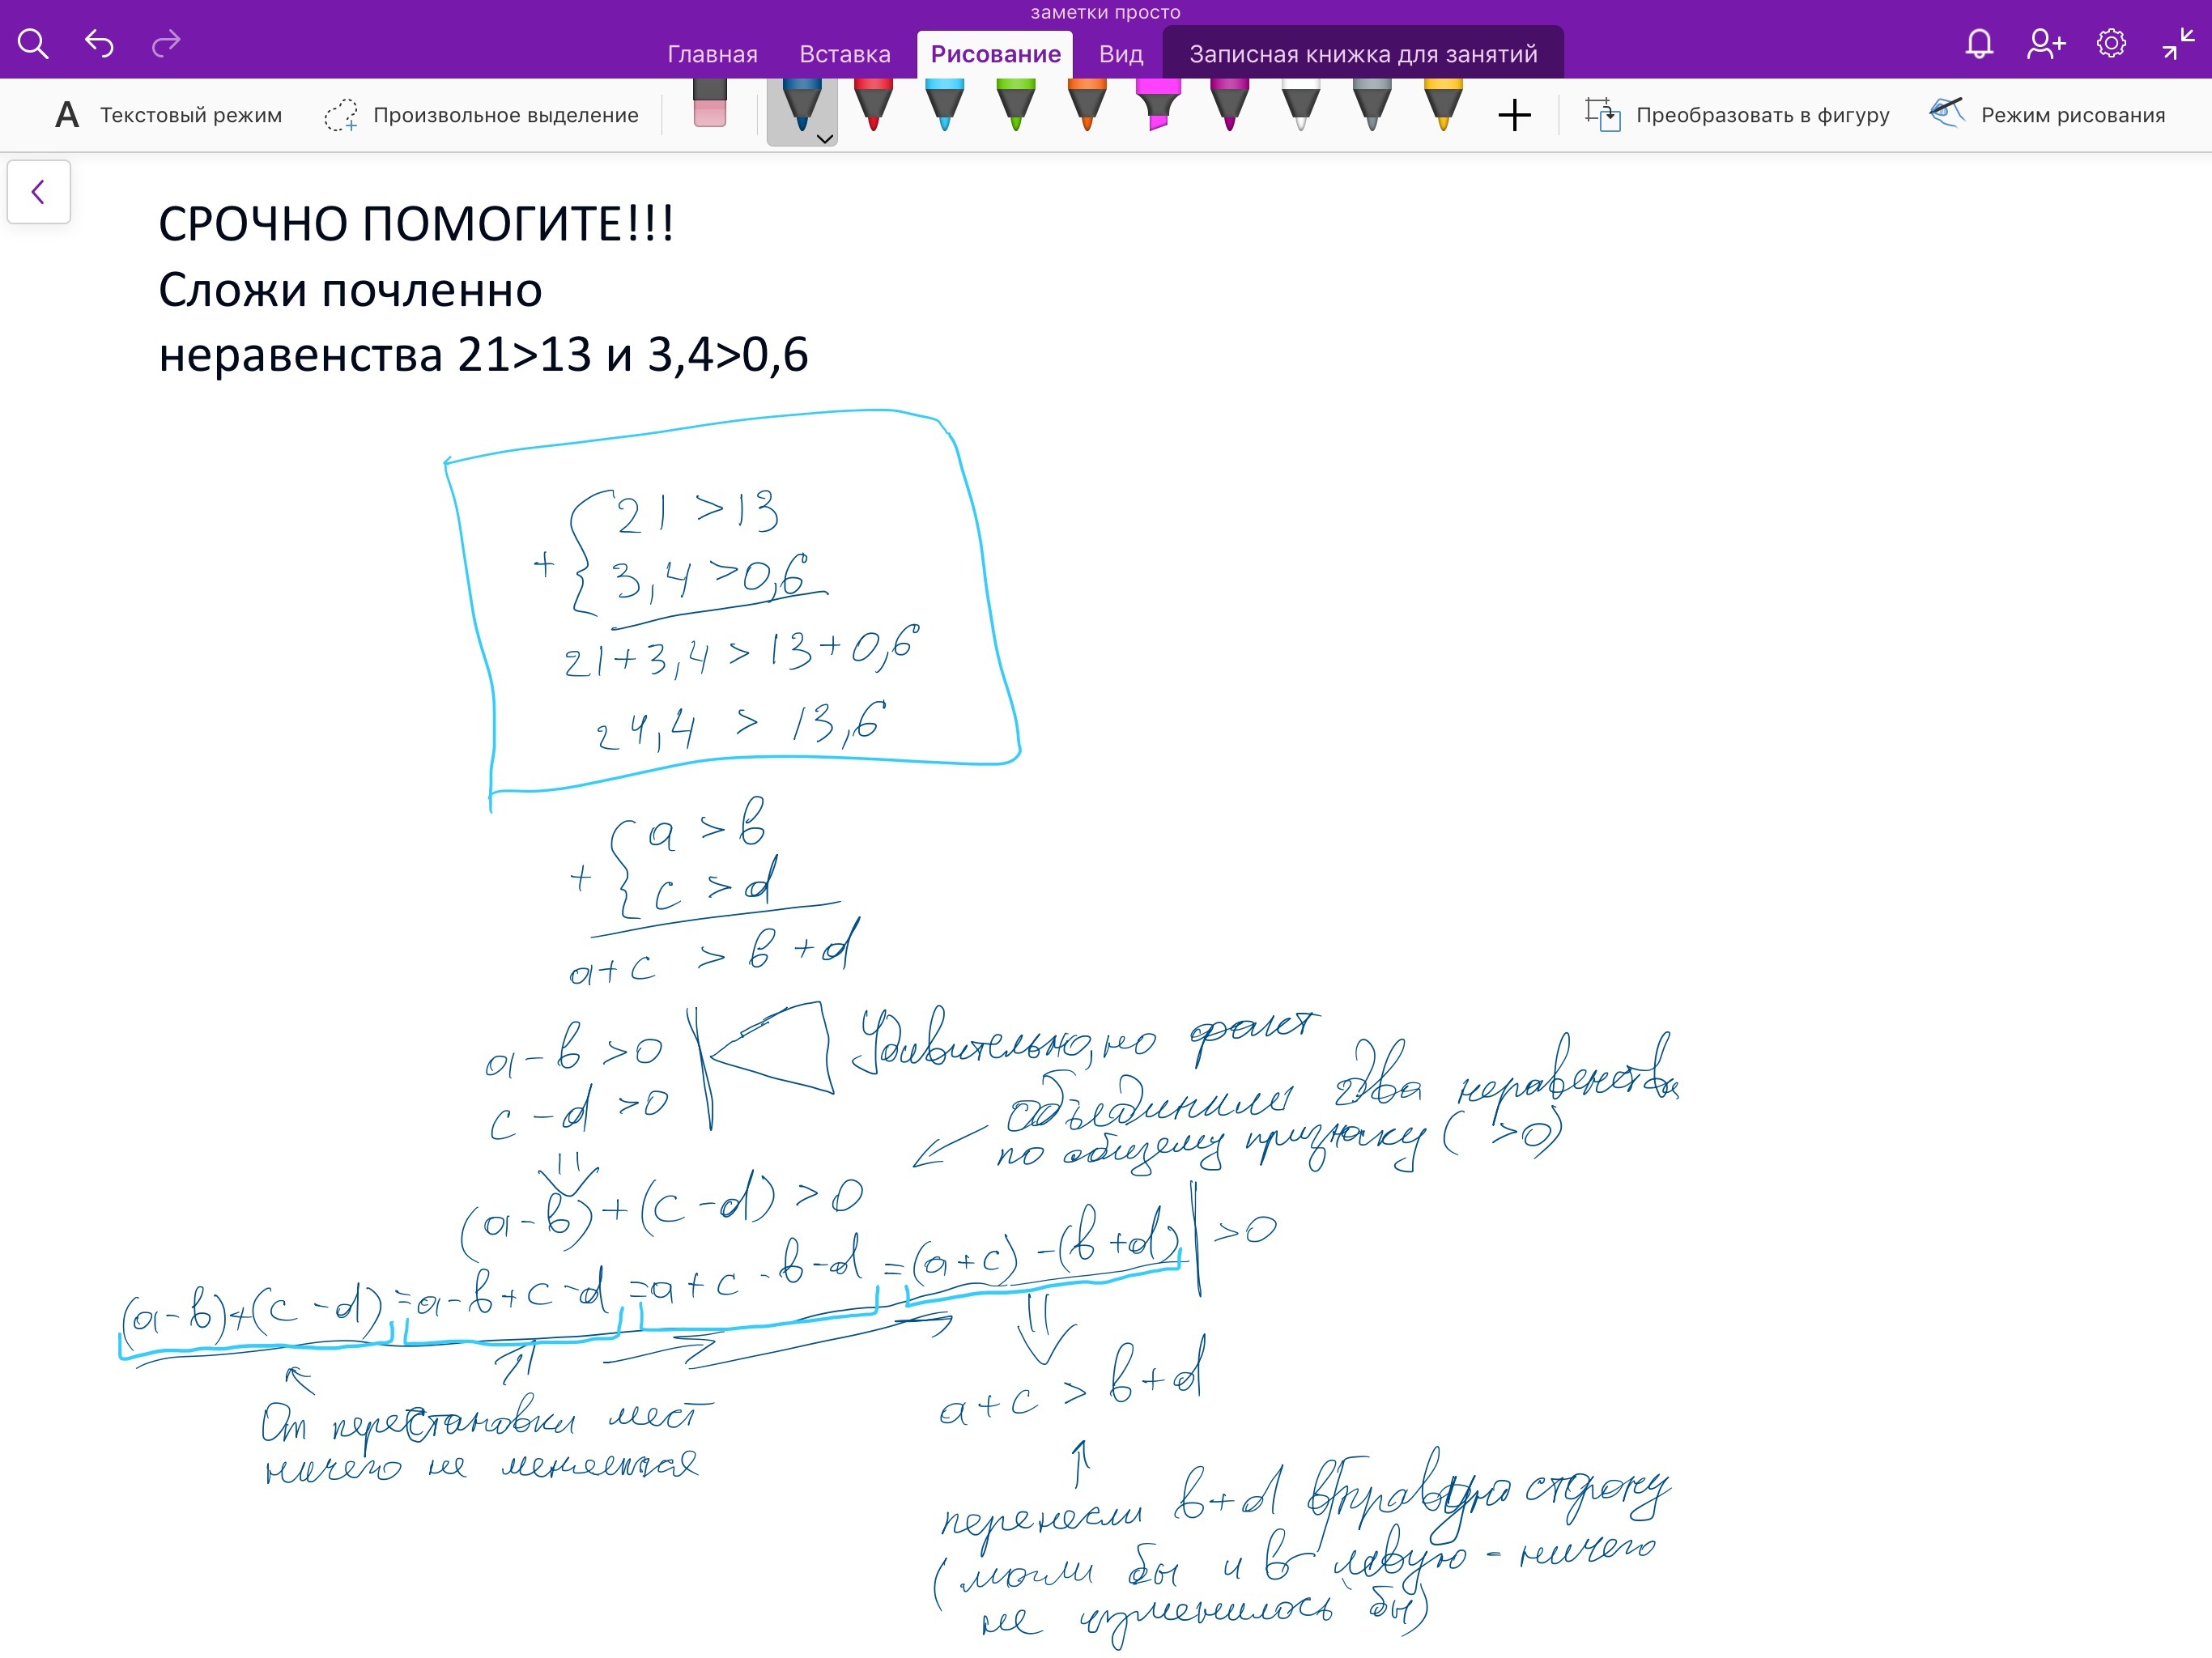 заметки просто
Главная Вставка Рисование Вид Записная книжка для занятий
Текстовый режим Произвольное выделение Преобразовать в фигуру Режим рисования
СРОЧНО ПОМОГИТЕ!!!
Сложи почленно
неравенства 21>13 и 3,4>0,6
21 > 13
+ { 3,4 > 0,6
21+3,4 > 13+0,6
24,4 > 13,6
a > b
+ { c > d
a+c > b+d
a-b >0
c-d >0
Удивительно, но факт
объединили два неравенства
по общему признаку ( >0)
(a-b)+(c-d) > 0
(a-b)+(c-d) = a-b+c-d = a+c-b-d = (a+c) -(b+d) | >0
a+c > b+d
От перестановки мест
ничего не меняется
перенесли b+d в правую сторону
(могли бы и в левую - ничего
не изменилось бы)